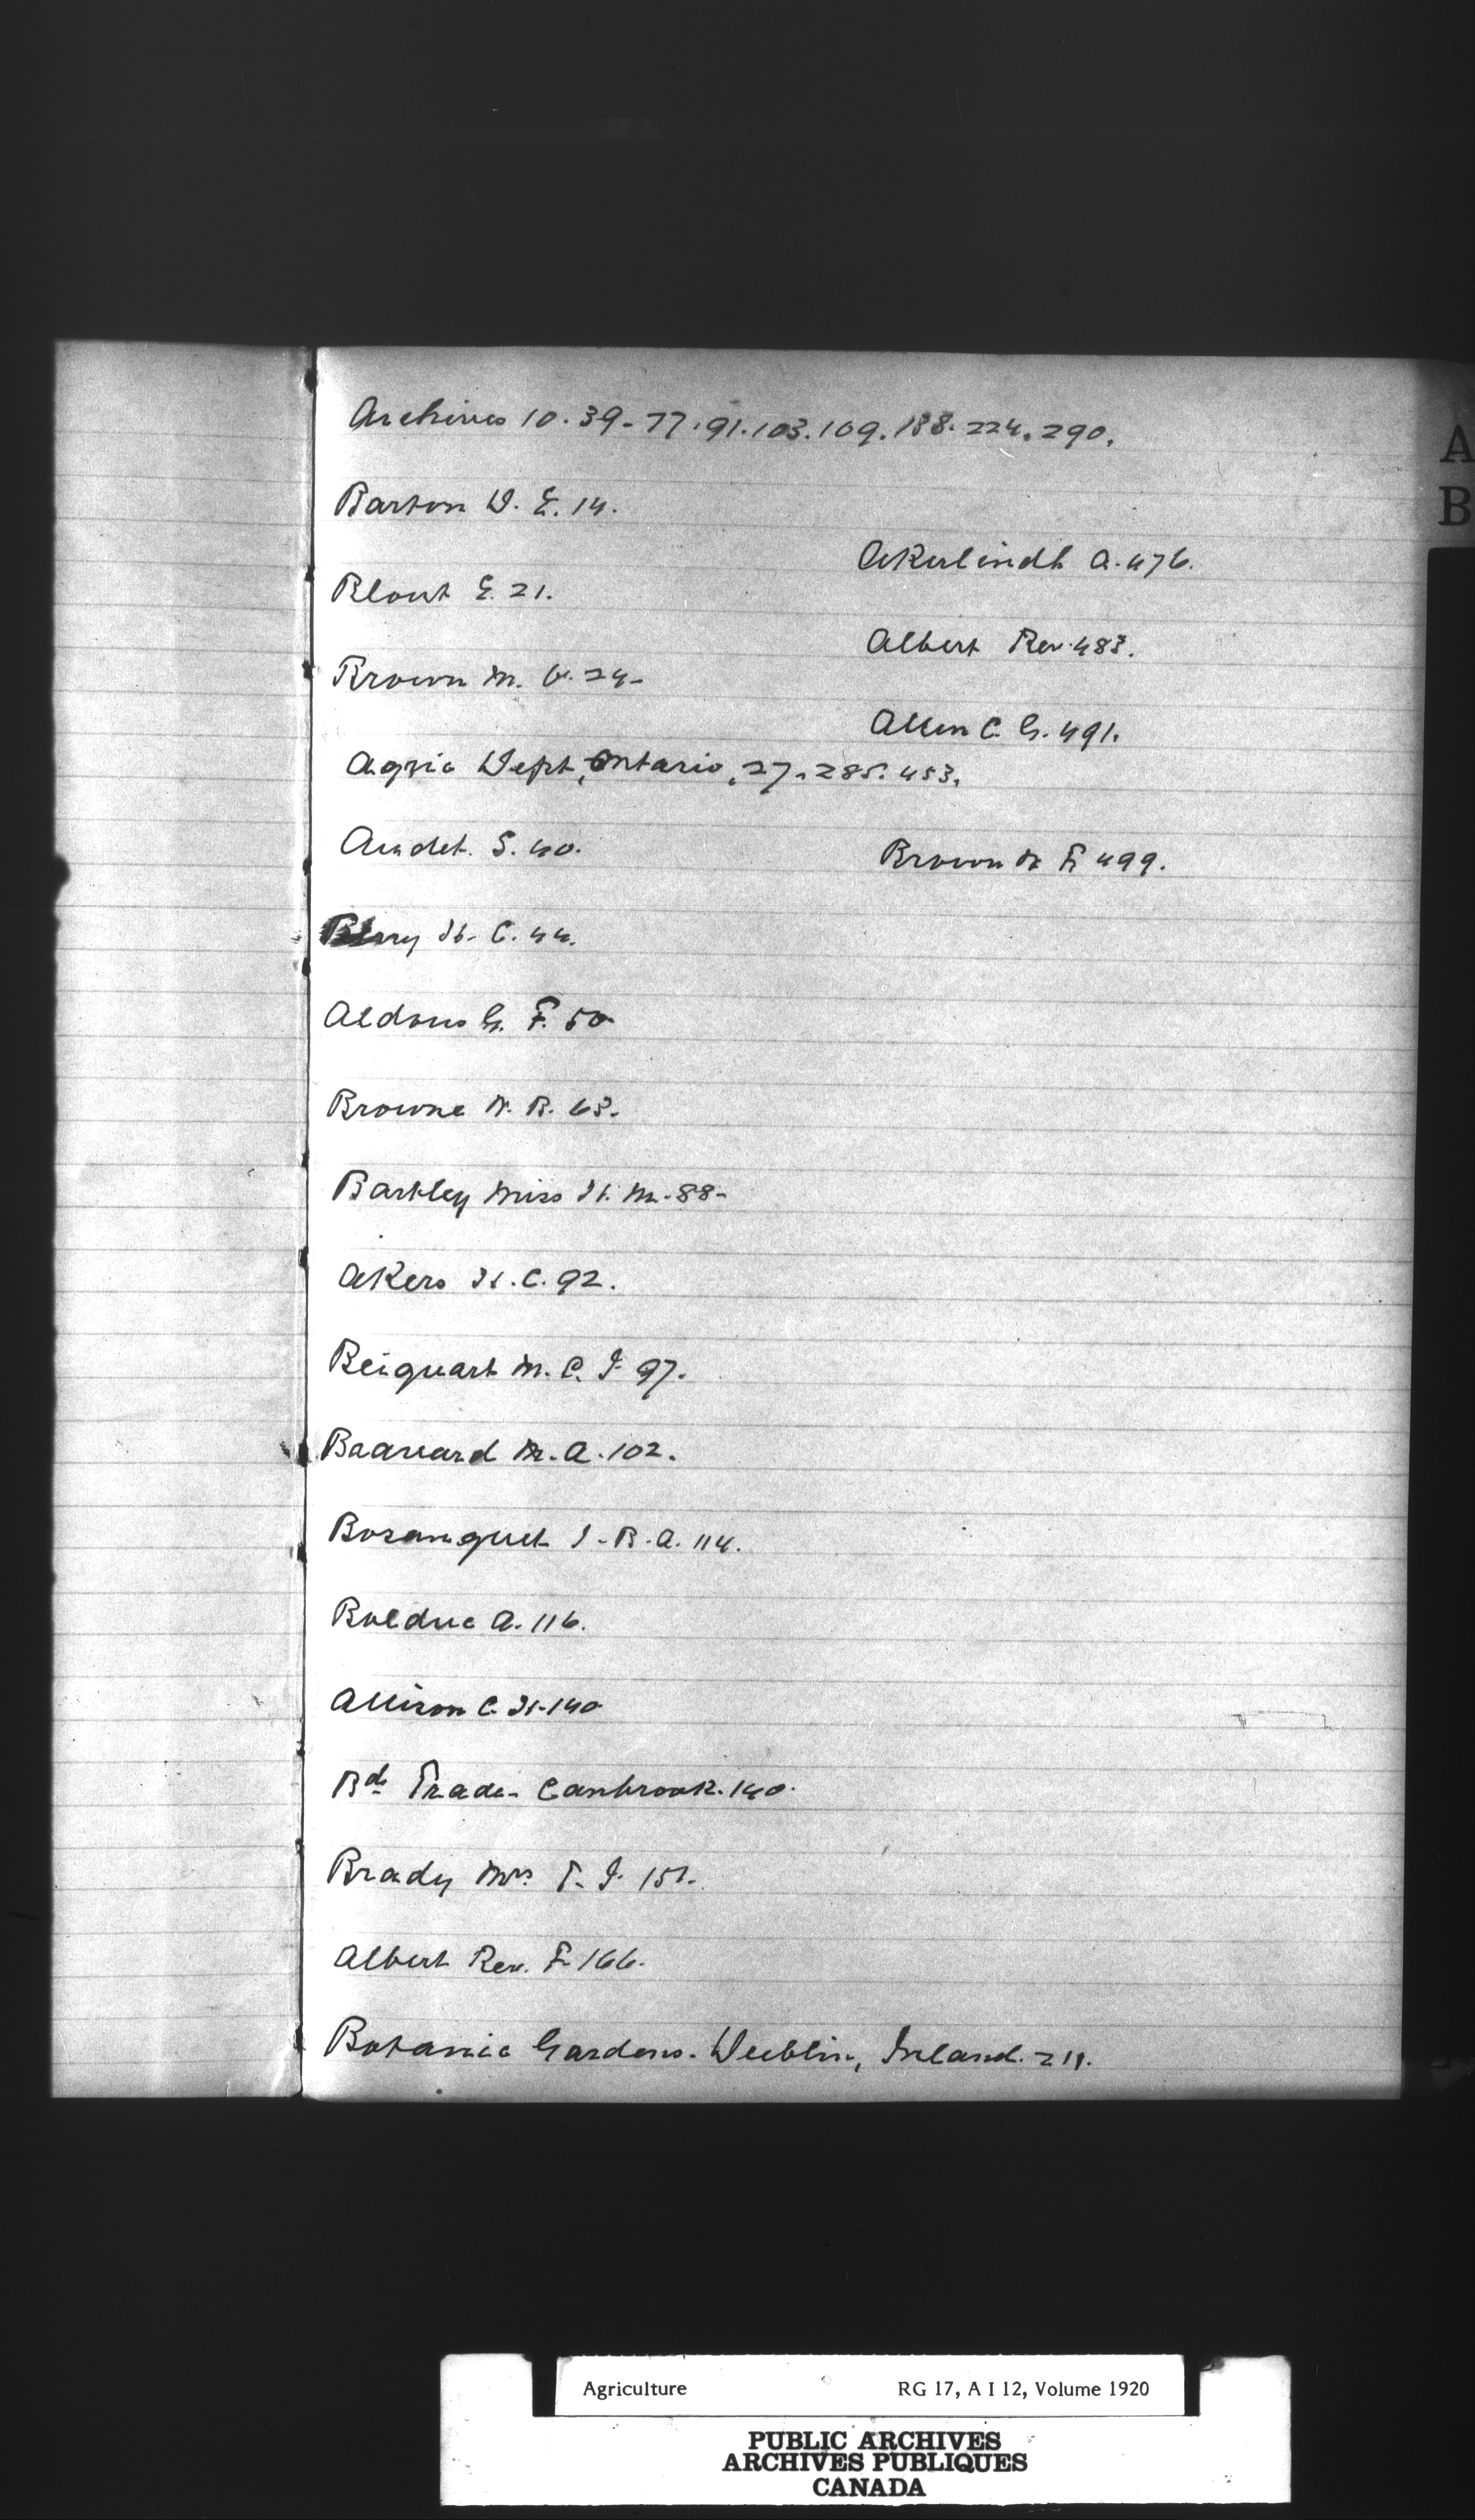 Archives 10. 39- 77. 91. 103. 109. 188. 224. 290.
A
B
Barton D. E. 14.
Akerlindh A. 476.
Blout E. 21.
Albert Rev. 483.
Brown M. 24-
Allen C. G. 491.
Agric Dept, Ontario, 27. 285. 453.
Audet. S. 40.
Brown F. 499.
Berry H. C. 44.
Aldous G. F. 50
Browne W. B. 63.
Barkley Miss H. M. 88-
Akers H. C. 92.
Beiquart M. C. J. 97.
M. A. 102.
Bosanquet J. B. A. 114.
Bolduc A. 116.
Allison C. H. 140
Bd Trade- Canbrook. 140.
Brady Mrs. T. J. 151.
Albert Rev. F. 166.
Botanic Gardens. Dublin, Ireland. 211.
Agriculture RG 17, A I 12, Volume 1920
PUBLIC ARCHIVES
ARCHIVES PUBLIQUES
CANADA